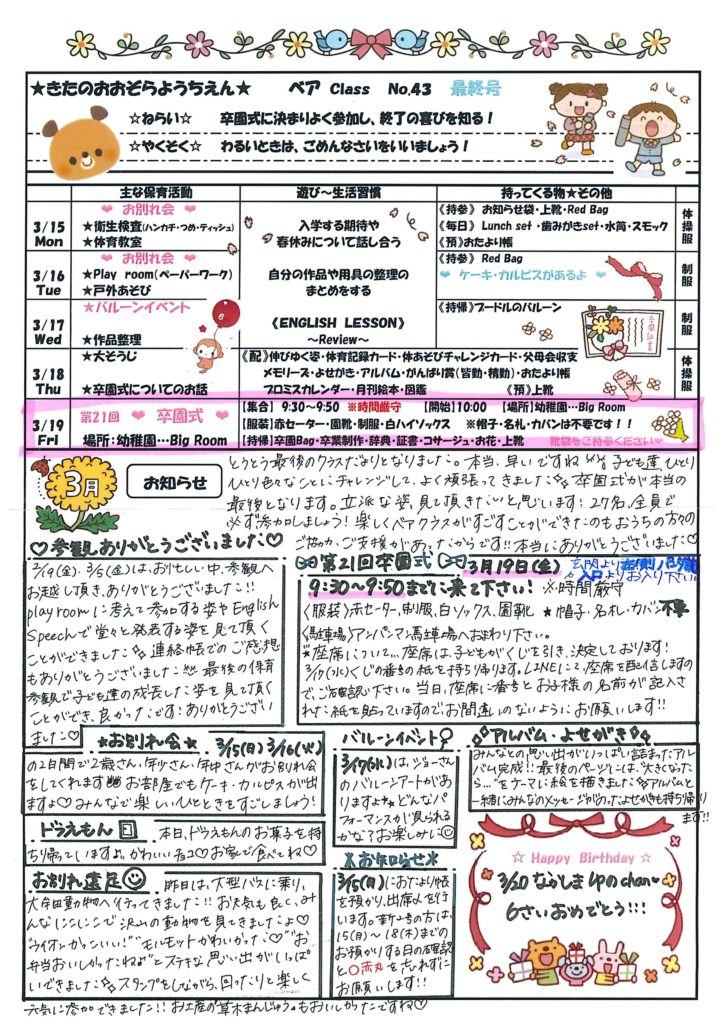 ★きたのおおぞらようちえん★ ベア Class No.43 最終号
☆ねらい☆ 卒園式に決まりよく参加し、終了の喜びを知る!
☆やくそく☆ わるいときは、ごめんなさいをいいましょう!
主な保育活動 遊び~生活習慣 持ってくる物★その他
3/15 Mon
❤ お別れ会
★衛生検査(ハンカチ・つめ・ティッシュ)
★体育教室
入学する期待や
春休みについて話し合う
《持参》 お知らせ袋・上靴・Red Bag
《毎日》 Lunch set・歯みがきset・水筒・スモック
《預》おたより帳
体操服
3/16 Tue
❤ お別れ会
★Play room(ペーパーワーク)
★戸外あそび
自分の作品や用具の整理の
まとめをする
《持参》 Red Bag
❤ ケーキ・カルピスがあるよ ❤
制服
3/17 Wed
★バルーンイベント
★作品整理
《ENGLISH LESSON》
~Review~
《持帰》プードルのバルーン
制服
3/18 Thu
★大そうじ
★卒園式についてのお話
《配》伸びゆく姿・体育記録カード・体あそびチャレンジカード・父母会収支
メモリーズ・よせがき・アルバム・がんばり賞(皆勤・精勤)・おたより帳
プロミスカレンダー・月刊絵本・図鑑 《預》上靴
体操服
3/19 Fri
第21回 ❤ 卒園式
場所:幼稚園…Big Room
【集合】 9:30~9:50 ※時間厳守 【開始】10:00 【場所】幼稚園…Big Room
【服装】赤セーター・園靴・制服・白ハイソックス ※帽子・名札・カバンは不要です!!
【持帰】卒園Bag・卒業制作・辞典・証書・コサージュ・お花・上靴 靴袋をご持参ください
3月 お知らせ
とうとう最後のクラスだよりとなりました。本当、早いですね 子ども達、ひとり
ひとり色々なことにチャレンジして、よく頑張ってきました 卒園式が本当の
最後となります。立派な姿、見て頂きたいと思います!27名、全員で
必ず参加しましょう!楽しくベアクラスがすごすことができたのもおうちの方々の
ご協力、ご支援があったからです!!本当にありがとうございました
♡参観ありがとうございました♡
2/19(金)、3/5(金)は、お忙しい中、参観へ
お越し頂き、ありがとうございました!!
play roomに考えて参加する姿やEnglish
Speechで堂々と発表する姿を見て頂く
ことができました 連絡帳でのご感想
もありがとうございました 最後の保育
参観で子ども達の成長した姿を見て頂く
ことができ、良かったです!ありがとうござい
ました♡
第21回卒園式 3月19日(金)
9:30~9:50までに来て下さい! ※時間厳守
玄関より
入口よりお入り下さい。
〈服装〉赤セーター、制服、白ソックス、園靴 ★帽子・名札・カバン不要
〈駐車場〉アンパンマン駐車場へお停め下さい。
★座席について…座席は、子どもがくじを引き、決定しております!
3/17(水)くじの番号の紙を持ち帰ります。LINEにて、座席を配信しますの
で、ご確認下さい。当日、座席に番号とお子様の名前が記入さ
れた紙を貼っていますのでお間違いのないようにお願いします!!
★お別れ会★ 3/15(月) 3/16(火)
の2日間で2歳さん・年少さん・年中さんがお別れ会
をしてくれます お部屋でもケーキ・カルピスが出
ますよ♡みんなで楽しいひとときをすごしましょう!
バルーンイベント
3/17(水)は、ジョーさん
のバルーンアートがあ
りますよ どんなパ
フォーマンスが見られる
かな?お楽しみに
アルバム・よせがき
みんなとの思い出がいっぱい詰まったアル
バム完成!!最後のページには、"大きくなった
ら…"をテーマに絵を描きました アルバムと
一緒にみんなのメッセージがのったよせがきも持ち帰り
ます!!
ドラえもん 本日、ドラえもんのお菓子を持
ち帰っていますよ。かわいいチョコ♡お家で食べてね♡
お別れ遠足 昨日は、大型バスに乗り、
大牟田動物へ行ってきました!!お天気も良く、み
んなにこにこで沢山の動物を見てきましたよ♡
"ライオンかっこいい!" "モルモットかわいかった♡" "お
弁当おいしかったね" とステキな思い出がいっぱ
いできました スタンプをしながら、回ったりと楽しく
元気に参加できました!!お土産の"草木まんじゅう"もおいしかったですね♡
お知らせ
3/15(月)におたより帳
を預かり、出席〆を行
います。
15(月)~18(木)までの
お預かりする日の確認
と○赤丸を忘れずに
お願いします!!
☆ Happy Birthday ☆
3/20 なかしま ゆの chan
6さいおめでとう!!!